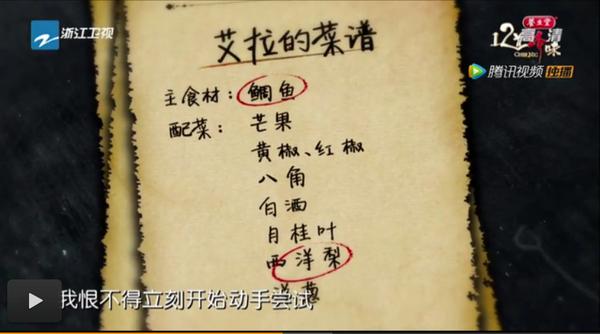 浙江卫视
养生堂
12道高清味
腾讯视频 独播
艾拉的菜谱
主食材：鲷鱼
配菜：芒果
黄椒、红椒
八角
白酒
月桂叶
西洋梨
洋葱
我恨不得立刻开始动手尝试